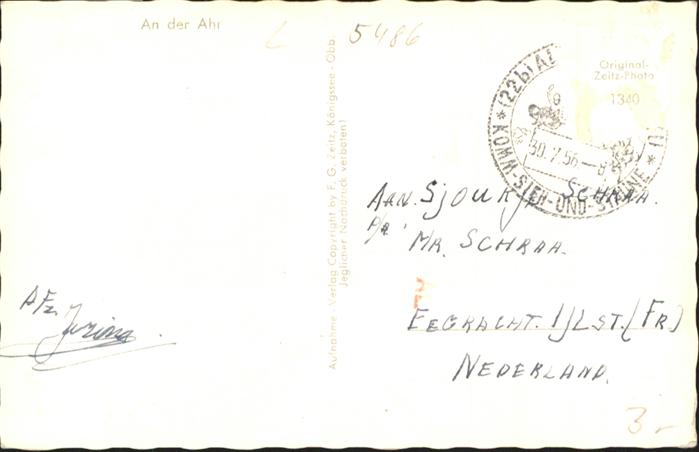 An der Ahr
L
5486
Original-
Zeitz-Photo
1340
* (22b) A
KOMM-SIEH-UND-STAUNE *
30.7.56.-8
Aufnahme - Verlag Copyright by F. G. Zeitz, Königssee - Obb.
Jeglicher Nachdruck verboten!
AAN. SJOUKJE SCHRAA.
P/A
MR. SCHRAA.
EEGRACHT. IJLST. (FR)
NEDERLAND.
AFZ.
3-